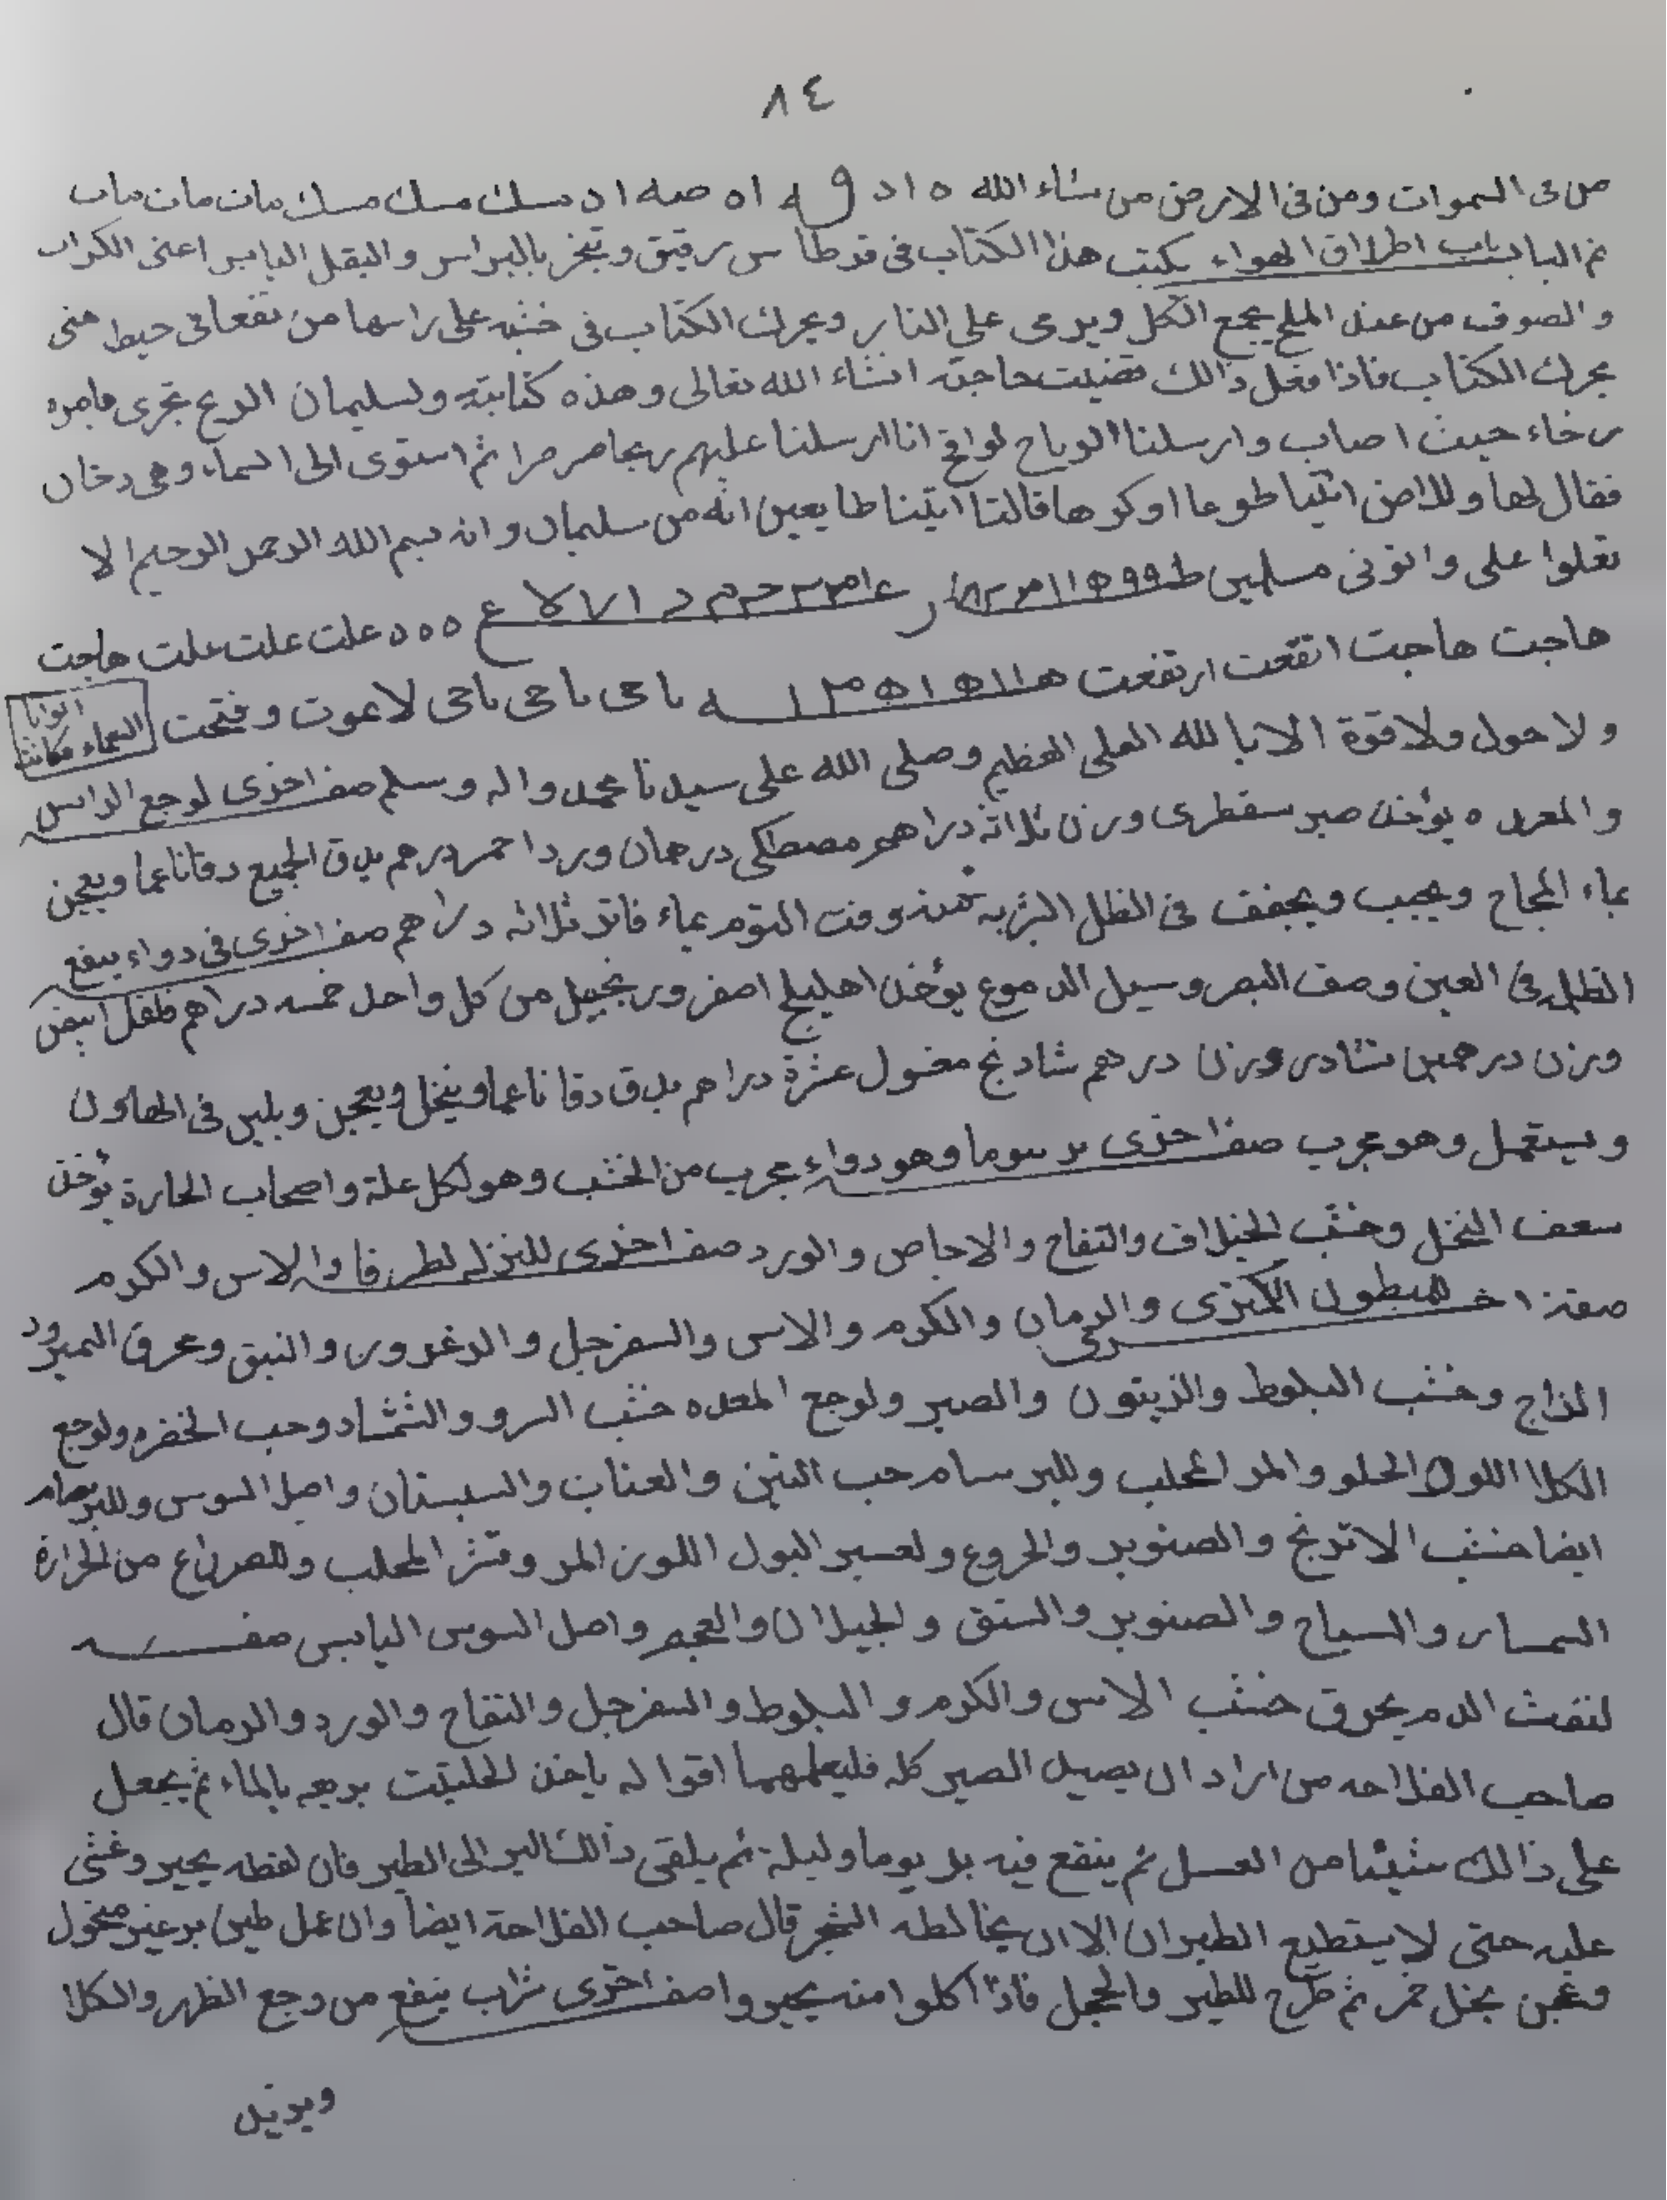 ٨٤
من فى السموات ومن فى الارض من شاء الله ه ا د ق ه اه صه ا د مسك مسك مسك مات مات مات
تم الباب باب اطلاق الهواء يكتب هذا الكتاب فى قرطاس رقيق وتبخر بالبراس والبقل اليابس اعنى الكراب
والصوف من عند الملح يجمع الكل ويرمى على النار ويحرك الكتاب فى خشبه على راسها مرتفعا فى خيط متى
يحرك الكتاب فاذا فعل ذالك قضيت حاجته انشاء الله تعالى وهذه كتابته ولسليمان الريح تجرى بامره
رخاء حيث اصاب وارسلنا الرياح لواقح انا ارسلنا عليهم ريحا صرصرا ثم استوى الى السماء وهى دخان
فقال لها وللارض ائتيا طوعا اوكرها قالتا اتينا طايعين انه من سليمان وانه بسم الله الرحمن الرحيم الا
تعلوا على واتونى مسلمين ه ه ه علت علت علت هاجت
هاجت هاجت ارتفعت ياحى ياحى ياحى لايموت وفتحت السماء فكانت ابوابا
ولا حول ولا قوة الا بالله العلى العظيم وصلى الله على سيدنا محمد واله وسلم صفه اخرى لوجع الراس
والمعده ه يؤخذ صبر سقطرى وزن ثلاثة دراهم مصطكى درهمان وردا حمر درهم يدق الجميع دقا ناعما ويعجن
بماء ويحبب ويجفف فى الظل الشربه منه وقت النوم بماء فاتر ثلاثه دراهم صفه اخرى فى دواء ينفع
الظلمه فى العين وضعف البصر وسيل الدموع يؤخذ اهليلج اصفر وزنجبيل من كل واحد خمسه دراهم فلفل ابيض
وزن درهمين نشادر وزن درهم شادنج مغسول عشرة دراهم يدق دقا ناعما وينخل ويعجن ويلين فى الهاون
ويستعمل وهو مجرب صفه اخرى برسوما وهو دواء مجرب من الخشب وهو لكل علة واصحاب الحارة يؤخذ
سعف النخل وخشب الخلاف والتفاح والاجاص والورد صفه اخرى للنزله لطرفا والاس والكرم
صفة اخرى للمبطون الكمثرى والرمان والكرم والاس والسفرجل والزعرور والنبق وعرق
الزاج وخشب البلوط والزيتون والصبر ولوجع المعده خشب السرو والشمشاد وحب الخضره ولوجع
الكلا اللوز الحلو والمر المحلب وللبرسام حب التين والعناب والسبستان واصل السوس وللبرسام
ايضا خشب الاترنج والصنوبر والخروع ولعسر البول اللوز المر وقشر المحلب وللصداع من الحرارة
والصنوبر واصل السوس اليابس صفه
لنفث الدم يحرق خشب الاس والكرم والبلوط والسفرجل والتفاح والورد والرمان قال
صاحب الفلاحه من اراد ان يصيد الصيد كله فليعلمهما اقوا له ياخذ الحلتيت يربعه بالماء ثم يجعل
على ذالك شيئا من العسل ثم ينقع فيه بر يوما وليلة ثم يلقى ذالك البر الى الطير فان لقطه يحير وغشى
عليه حتى لا يستطيع الطيران الا ان يخالطه الشجر قال صاحب الفلاحة ايضا وان عمل طين بر غير منخول
وعجن بخل خمر ثم طرح للطير والحجل فاذا اكلوا منه يحيروا صفه اخرى شراب ينفع من وجع الظهر والكلا
ويزيل